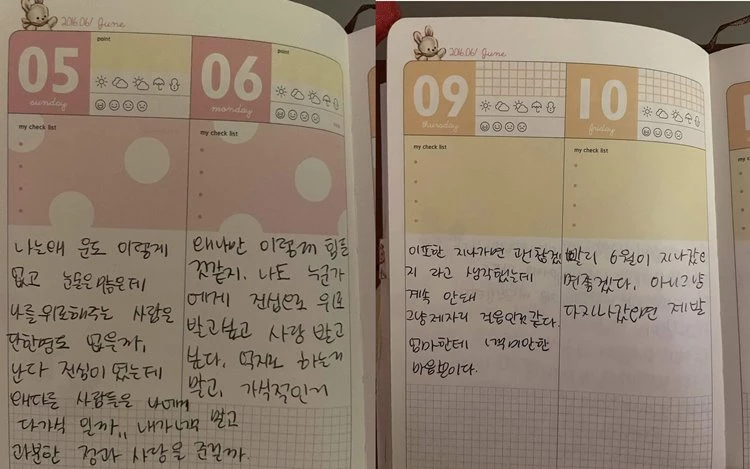 2016.06/June
05
sunday
point
my check list
나는왜 운도 이렇게
없고 눈물은많은데
나를위로해주는 사람은
단한명도 없을까,
난다 진심이 였는데
왜다른 사람들은 나에게
다가식 일까,, 내가너무 많고
과분한 정과 사랑을 준걸까.
06
monday
point
my check list
왜나만 이렇게 힘들
것같지. 나도 누군가
에게 진심으로 위로
받고싶고 사랑 받고
싶다. 억지로 하는거
말고, 가식적인거
2016.06/June
09
thursday
my check list
이또한 지나가면 괜찮겠
지 라고 생각했는데
계속 안돼
그냥제자리 걸음인것같다.
엄마한테 너무미안한
마음뿐이다.
10
friday
my check list
빨리 6월이 지나갔으
면좋겠다. 아니그냥
다지나갔으면 제발